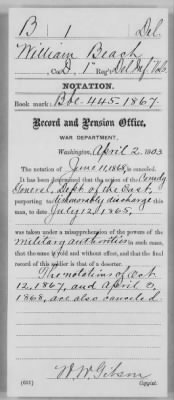 B 1 Del.
William Beach
, Co. D, 1" Reg't Del. Inf. Vols.
NOTATION.
Book mark: B.Oe. 445. 1867.
Record and Pension Office,
WAR DEPARTMENT,
Washington, April 2, 1903.
The notation of June 11, 1868, is canceled.
It has been determined that the action of the
General, Dept. of the East,
purporting to honorably discharge this
man, to date July 12, 1865,
was taken under a misapprehension of the powers of the
military authorities in such cases,
that the same is void and without effect, and that the
final record of this soldier is that of a deserter.
The notations of Oct.
12, 1867, and April 3,
1868, are also canceled.
W. W. Gibson
(631) Copyist.